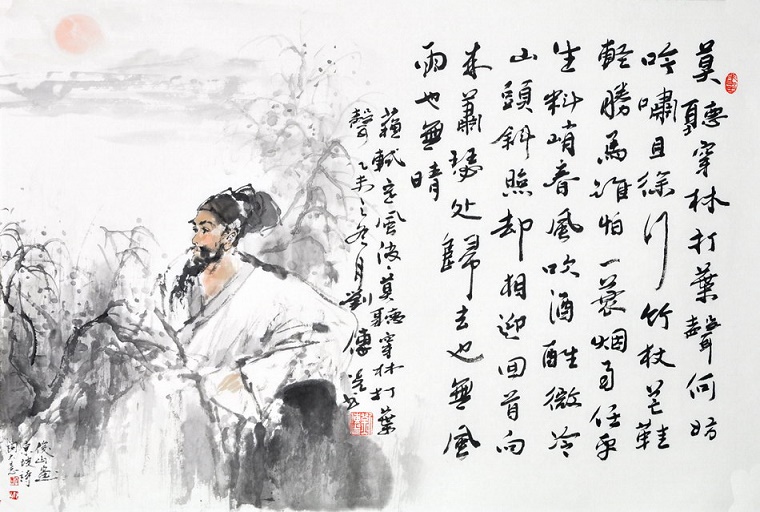 莫聽穿林打葉聲何妨
吟嘯且徐行竹杖芒鞋
輕勝馬誰怕一蓑烟雨任平
生料峭春風吹酒醒微冷
山頭斜照却相迎回首向
來蕭瑟处歸去也無風
雨也無晴
蘇軾定風波·莫聽穿林打葉
聲乙未之冬月劉傳
俊山畫
東坡詩